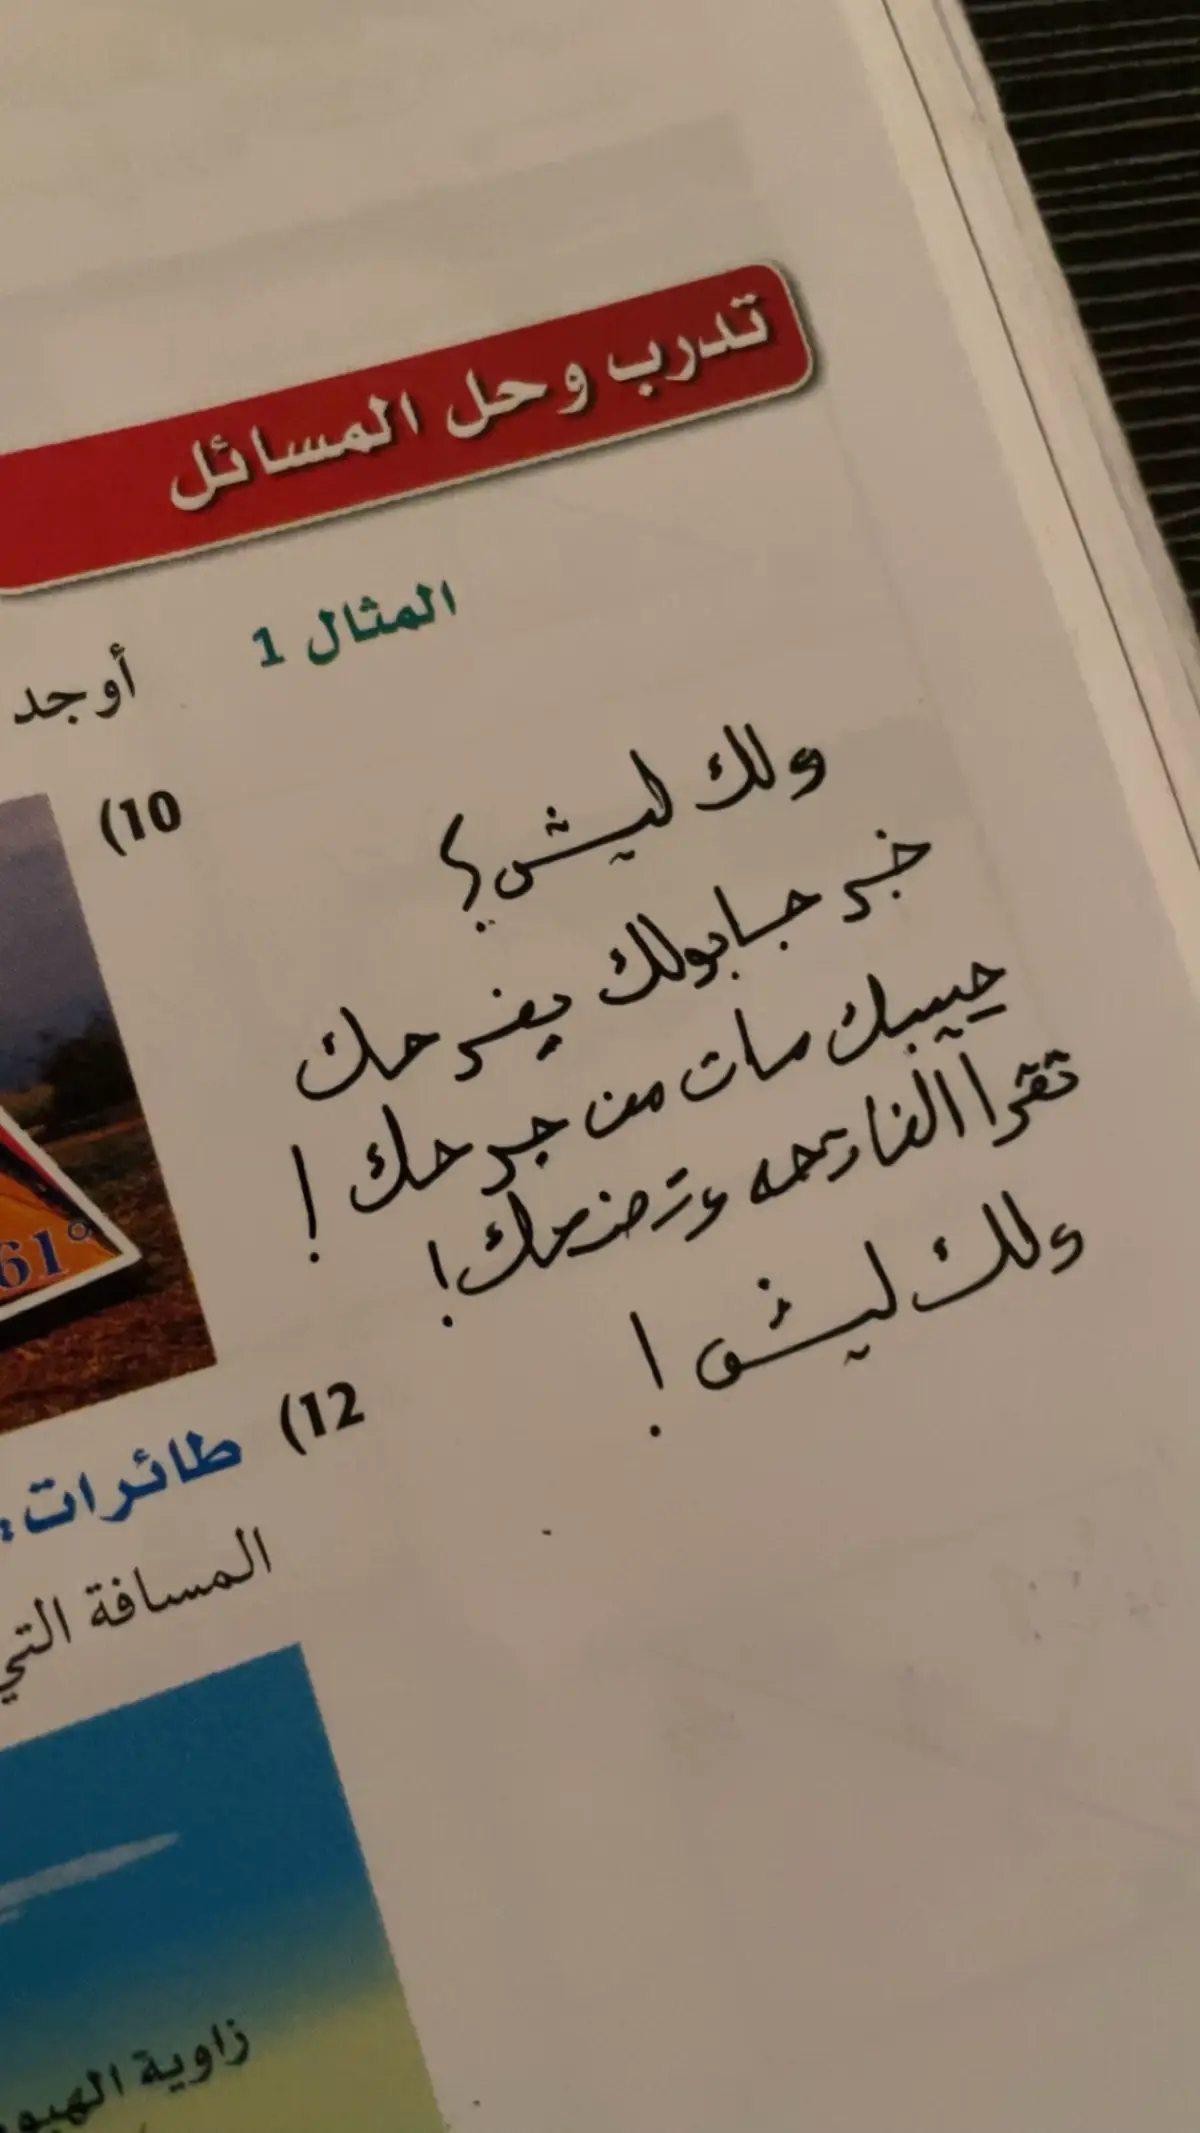 تدرب وحل المسائل
المثال 1
أوجد
(10
ولك ليش؟
خبر جابولك يفرحك
حبيبك مات من جرحك!
تقرا الفاتحه وتضحك!
ولك ليش!
61°
(12
طائرات:
المسافة التي
زاوية